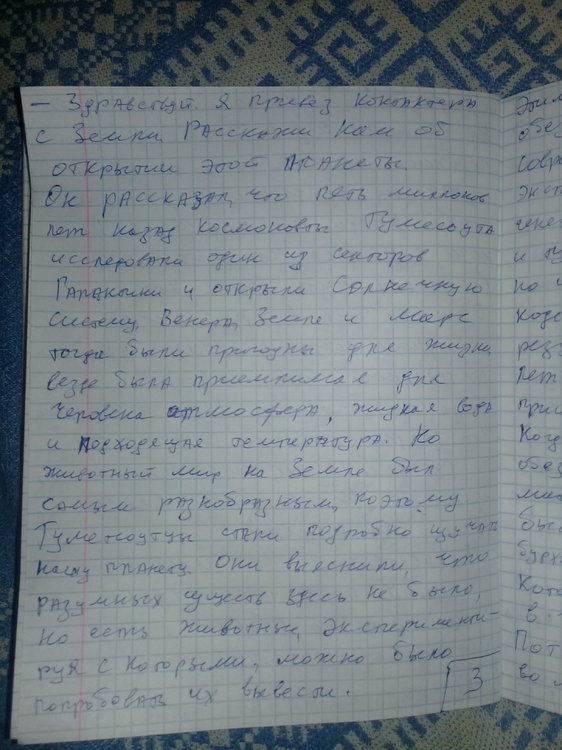 - Здравствуй. Я привёз контактера
с Земли. Расскажи нам об
открытии этой планеты.
Он рассказал, что пять миллионов
лет назад космонавты Гумеоута
исследовали один из секторов
Галактики и открыли Солнечную
систему. Венера, Земля и Марс
тогда были пригодны для жизни,
везде была приемлимая для
человека атмосфера, жидкая вода
и подходящая температура. Но
животный мир на Земле был
самым разнообразным, поэтому
Гумеоутцы стали подробно изучать
нашу планету. Они выяснили, что
разумных существ здесь не было,
но есть животные, эксперименти-
руя с которыми, можно было
попробовать их вывести.
3
Этим
обез
совр
эксп
гене
и г
но
ходе
рез
лет
при
Когд
обез
мы
был
бурх
Кото
в
Пот
во